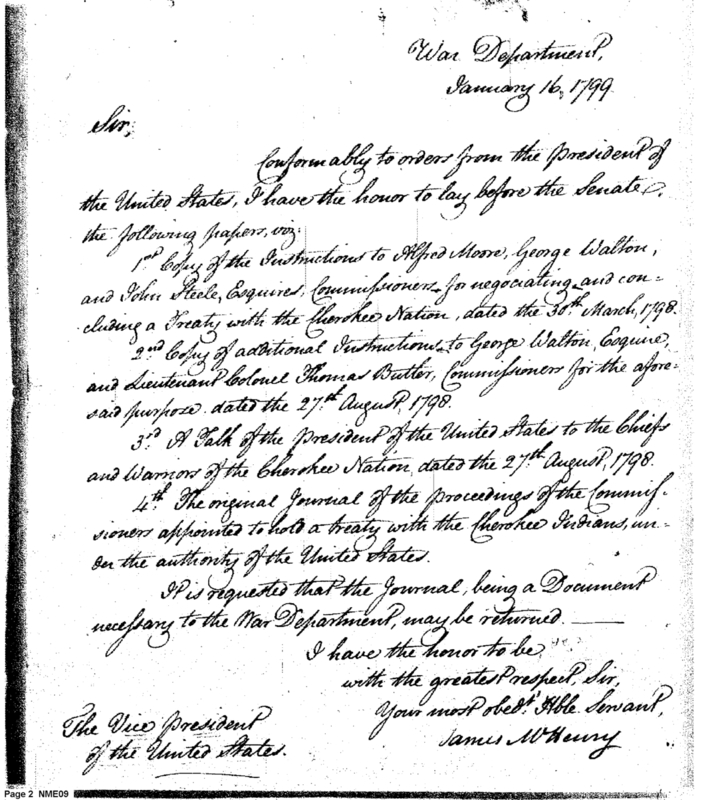 War Department,
January 16, 1799
Sir,
Conformably to orders from the President of
the United States, I have the honor to lay before the Senate,
the following papers, viz:
1st Copy of the Instructions to Alfred Moore, George Walton,
and John Steele, Esquires, Commissioners for negociating and con=
cluding a Treaty with the Cherokee Nation, dated the 30th March, 1798.
2nd Copy of additional Instructions to George Walton, Esquire,
and Lieutenant Colonel Thomas Butler, Commissioners for the afore=
said purpose dated the 27th August, 1798.
3rd A Talk of the President of the United States to the Chiefs
and Warriors of the Cherokee Nation, dated the 27th August, 1798.
4th The original Journal of the proceedings of the Commis-
sioners appointed to hold a treaty with the Cherokee Indians, un=
der the authority of the United States.
It is requested that the Journal, being a Document
necessary to the War Department, may be returned.
I have the honor to be
with the greatest respect, Sir,
Your most obedt Hble Servant,
James McHenry
The Vice President
of the United States.
Page 2 NME09